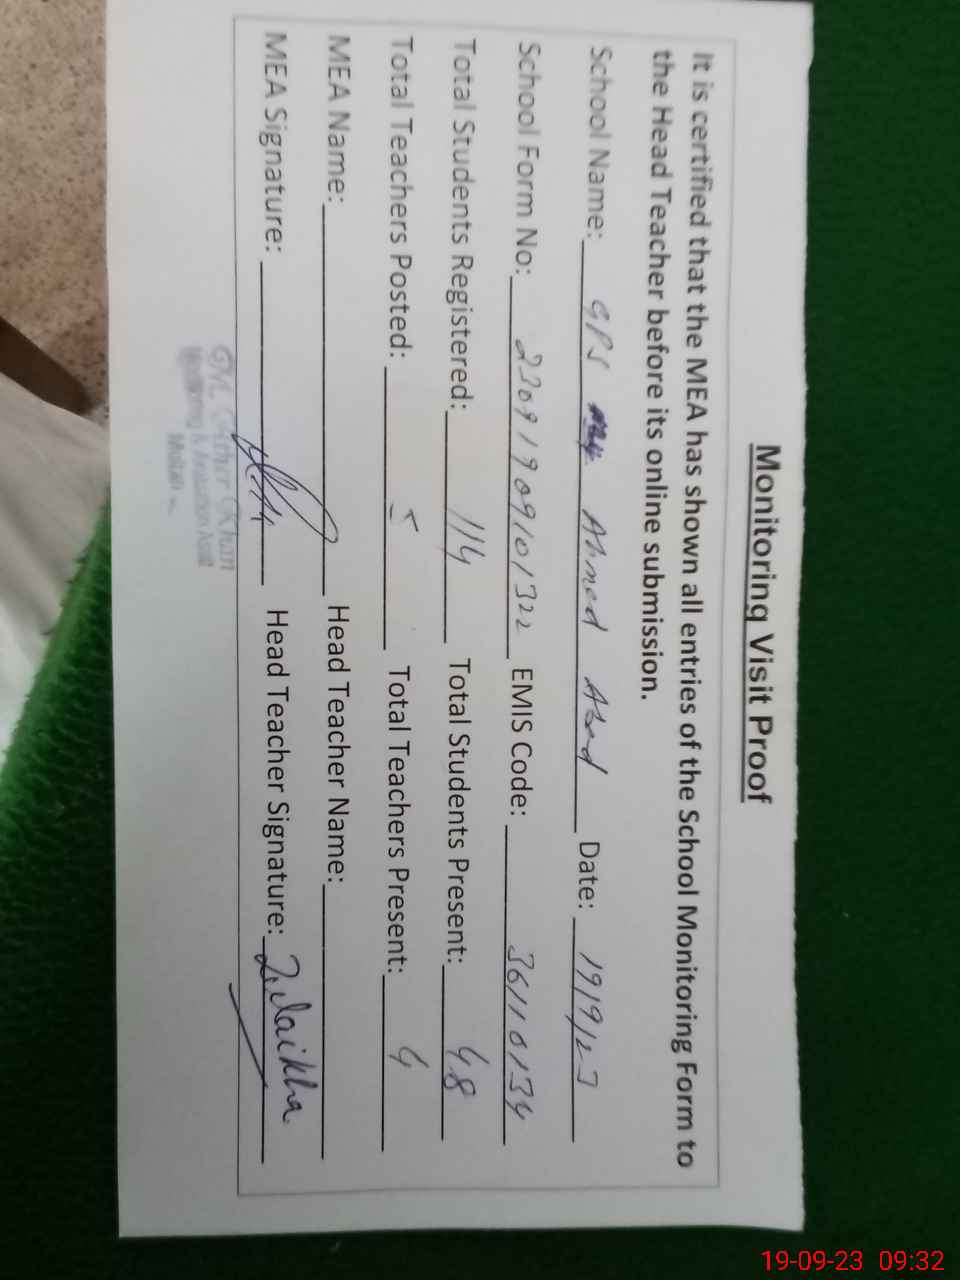 Monitoring Visit Proof
It is certified that the MEA has shown all entries of the School Monitoring Form to
the Head Teacher before its online submission.
School Name: GPS Ahmed Abad Date: 19/9/23
School Form No: 23091909101322 EMIS Code: 36110134
Total Students Registered: 114 Total Students Present: 48
Total Teachers Posted: 5 Total Teachers Present: 4
MEA Name: Head Teacher Name:
MEA Signature: Head Teacher Signature: Zulaikha
Khan
Monitoring & Evaluation Asstt
19-09-23 09:32